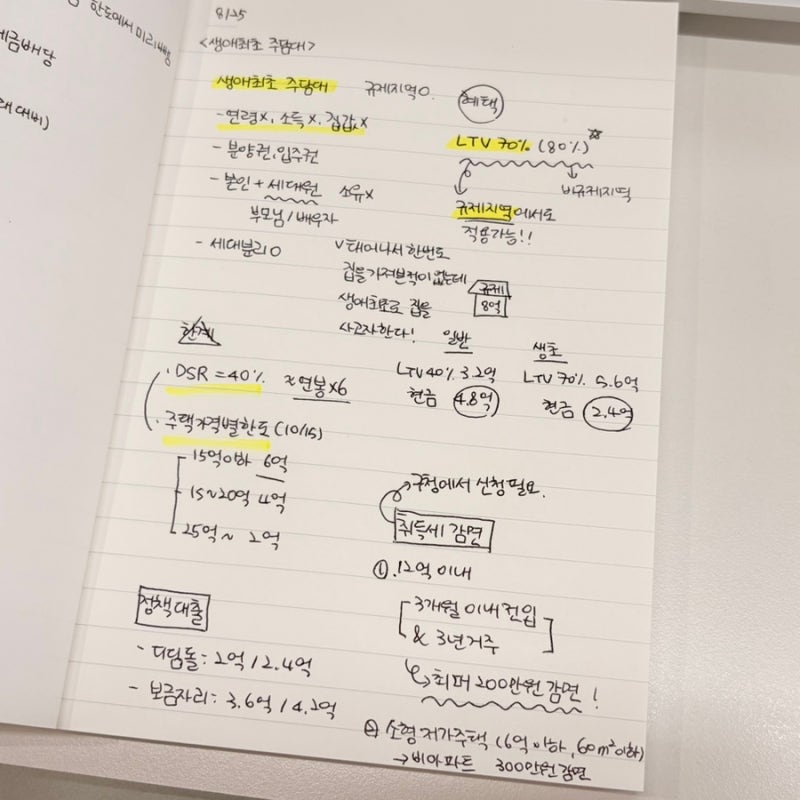 한도에서 미리
세금배당
대비)
8/25
<생애최초 주담대>
생애최초 주담대 규제지역O.
혜택
-연령x, 소득x, 집값x
LTV 70% (80%)
- 분양권, 입주권
비규제지역
- 본인 + 세대원 소유x
부모님/배우자
규제지역에서도
적용가능!!
- 세대분리O
v 태어나서 한번도
집을 가져본적이 없는데
생애최초로 집을
사고자한다!
규제
8억
한계
일반
생초
LTV 40% 3.2억
LTV 70% 5.6억
현금 4.8억
현금 2.4억
· DSR = 40% ≈연봉x6
· 주택가격별한도 (10/15)
15억이하 6억
15~20억 4억
25억~ 2억
구청에서 신청필요.
취득세 감면
① .12억 이내
3개월 이내 전입
& 3년거주
최대 200만원 감면!
정책대출
- 디딤돌: 2억 / 2.4억
- 보금자리: 3.6억 / 4.2억
② 소형 저가주택 (6억 이하, 60m² 이하)
→비아파트 300만원 감면